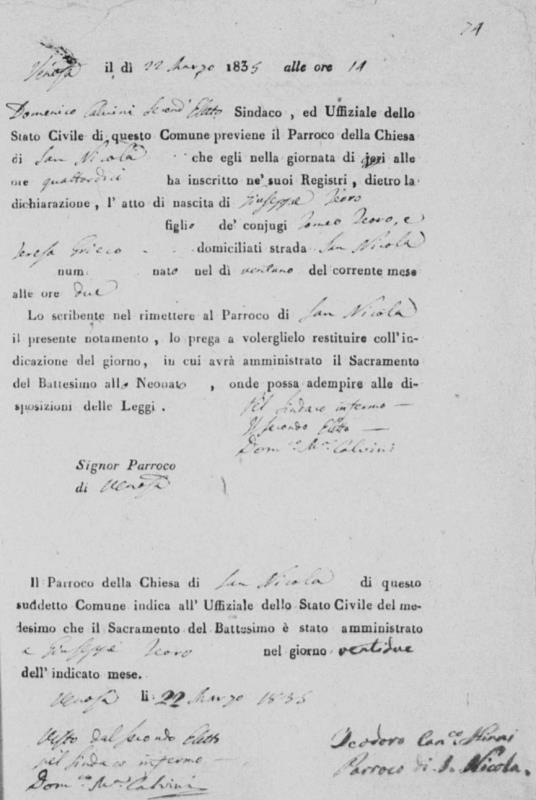 74
Venosa il dì 22 Marzo 1835 alle ore 14
Domenico Calvini Second' Eletto Sindaco, ed Uffiziale dello
Stato Civile di questo Comune previene il Parroco della Chiesa
di San Nicola che egli nella giornata di jeri alle
ore quattordici ha inscritto ne' suoi Registri, dietro la
dichiarazione, l' atto di nascita di Giuseppe Teoro
figlio de' conjugi Teoro, e
Teresa Grieco domiciliati strada San Nicola
num nato nel dì ventuno del corrente mese
alle ore due
Lo scribente nel rimettere al Parroco di San Nicola
il presente notamento, lo prega a volerglielo restituire coll' in-
dicazione del giorno, in cui avrà amministrato il Sacramento
del Battesimo allo Neonato, onde possa adempire alle di-
sposizioni delle Leggi.
Pel Sindaco infermo
Il secondo Eletto
Dom.co M.a Calvini
Signor Parroco
di Venosa
Il Parroco della Chiesa di San Nicola di questo
suddetto Comune indica all' Uffiziale dello Stato Civile del me-
desimo che il Sacramento del Battesimo è stato amministrato
a Giuseppe Teoro nel giorno ventidue
dell' indicato mese.
Venosa li 22 Marzo 1835
Visto dal secondo Eletto
pel Sindaco infermo
Dom.co M.a Calvini
Teodoro Can.co
Parroco di S. Nicola.